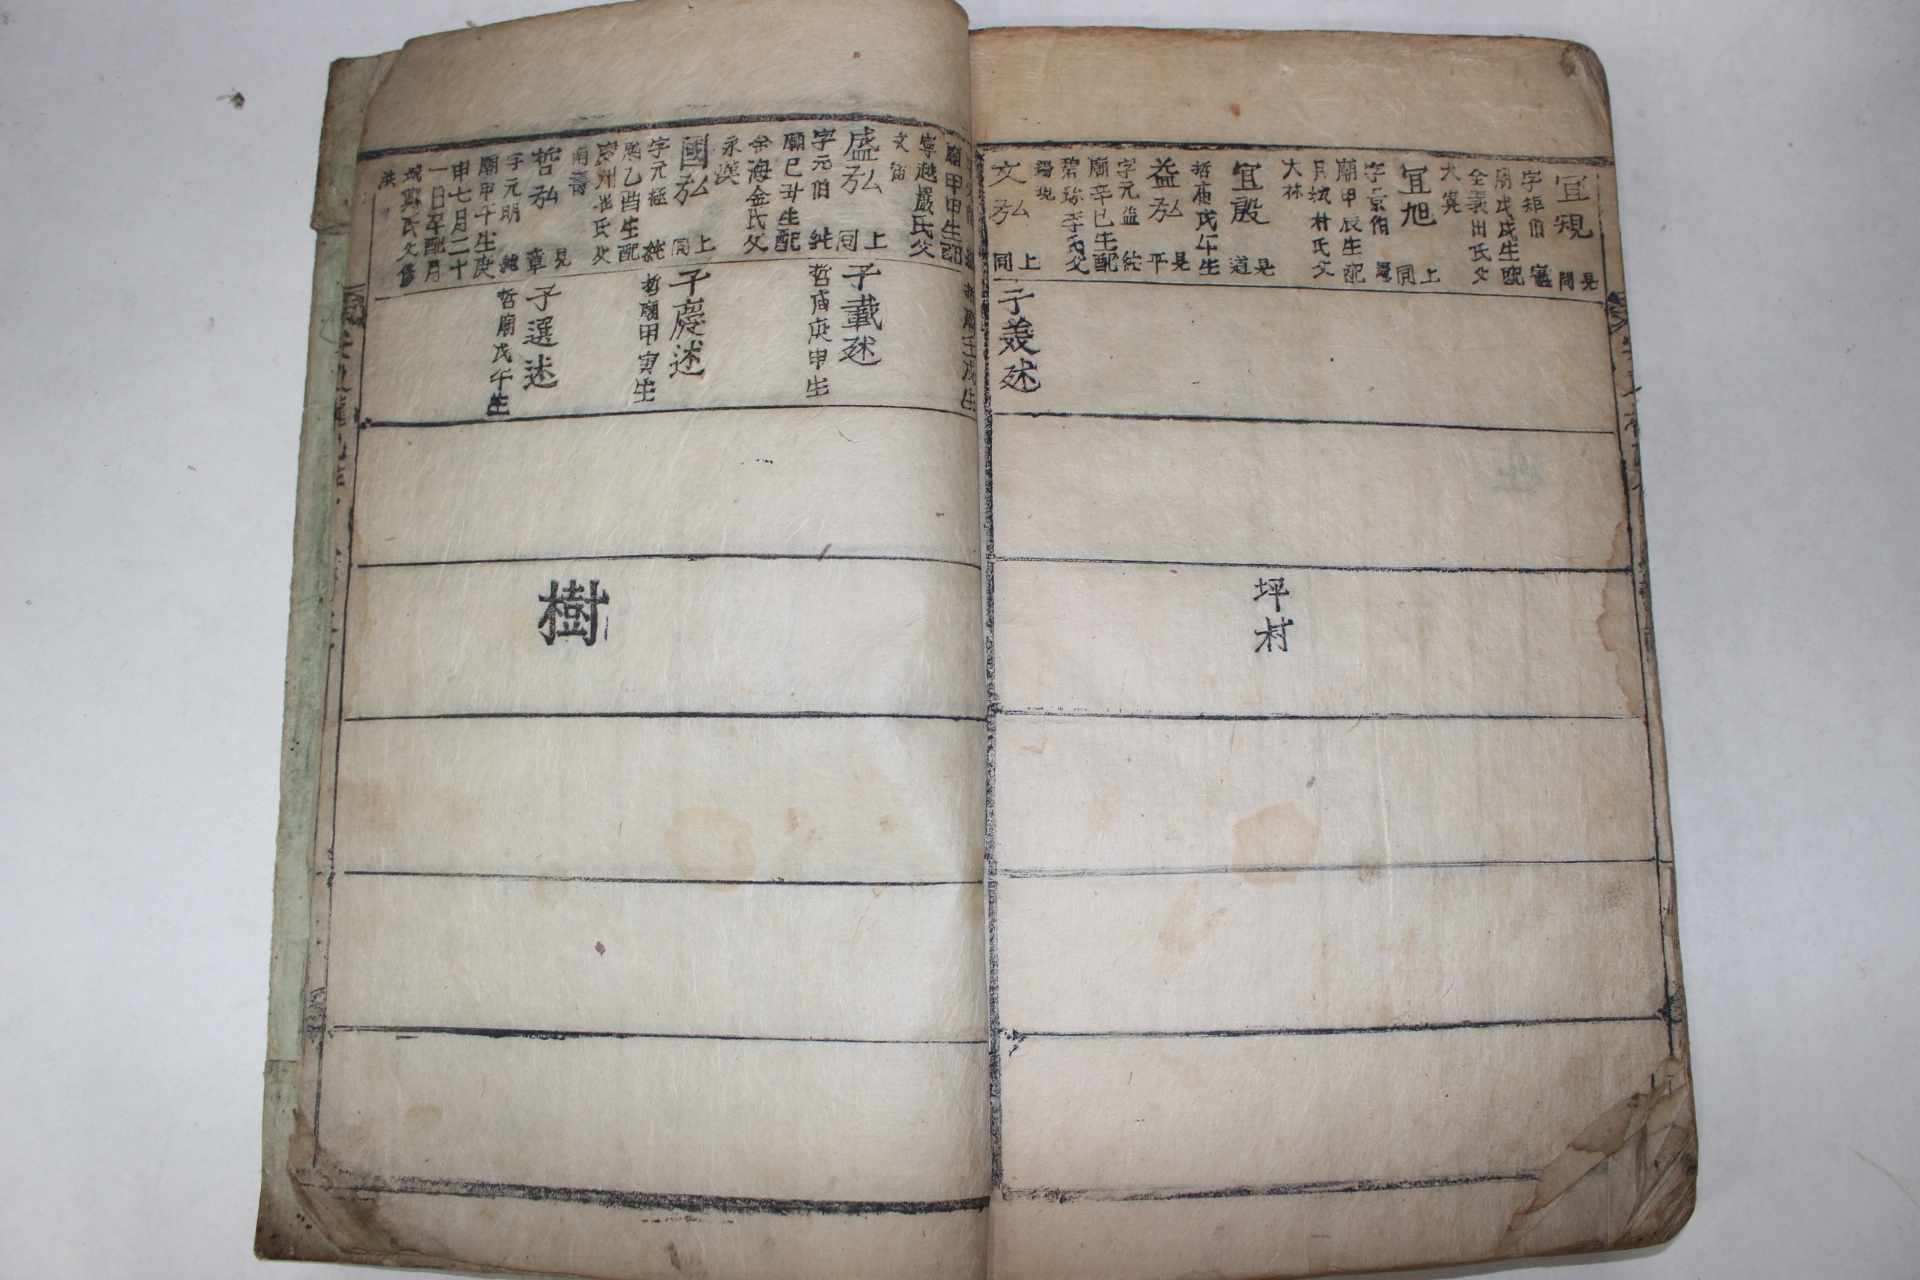 宜規
見
問
字矩伯 憲
廟戊戌生配
全義田氏父
大寬
宜旭
上
同
字景伯 憲
廟甲辰生配
月城朴氏父
大林
宜殷
見
道
哲廟戊午生
益弘
見
平
字元益 純
廟辛巳生配
碧珍李氏父
錫現
文弘
上
同
子義述
坪
村
廟甲申生配
寧越嚴氏父
文宙
哲廟壬戌生
盛弘
上
同
字元伯 純
廟己丑生配
金海金氏父
永漢
子載述
哲廟庚申生
國弘
上
同
字元極 純
廟乙酉生配
慶州崔氏父
南壽
子慶述
哲廟甲寅生
哲弘
見
章
字元明 純
廟甲午生庚
申七月二十
一日卒配月
城鄭氏父修
洪
子選述
哲廟戊午生
樹